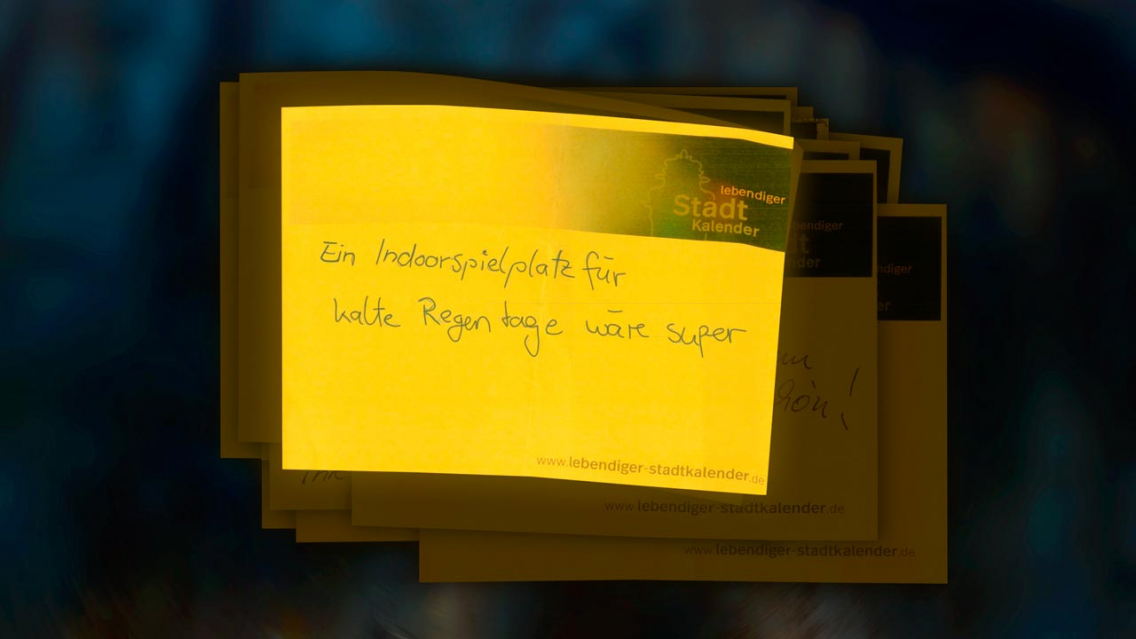 lebendiger
Stadt
Kalender
Ein Indoorspielplatz für
kalte Regentage wäre super
www.lebendiger-stadtkalender.de
www.lebendiger-stadtkalender.de
www.lebendiger-stadtkalender.de